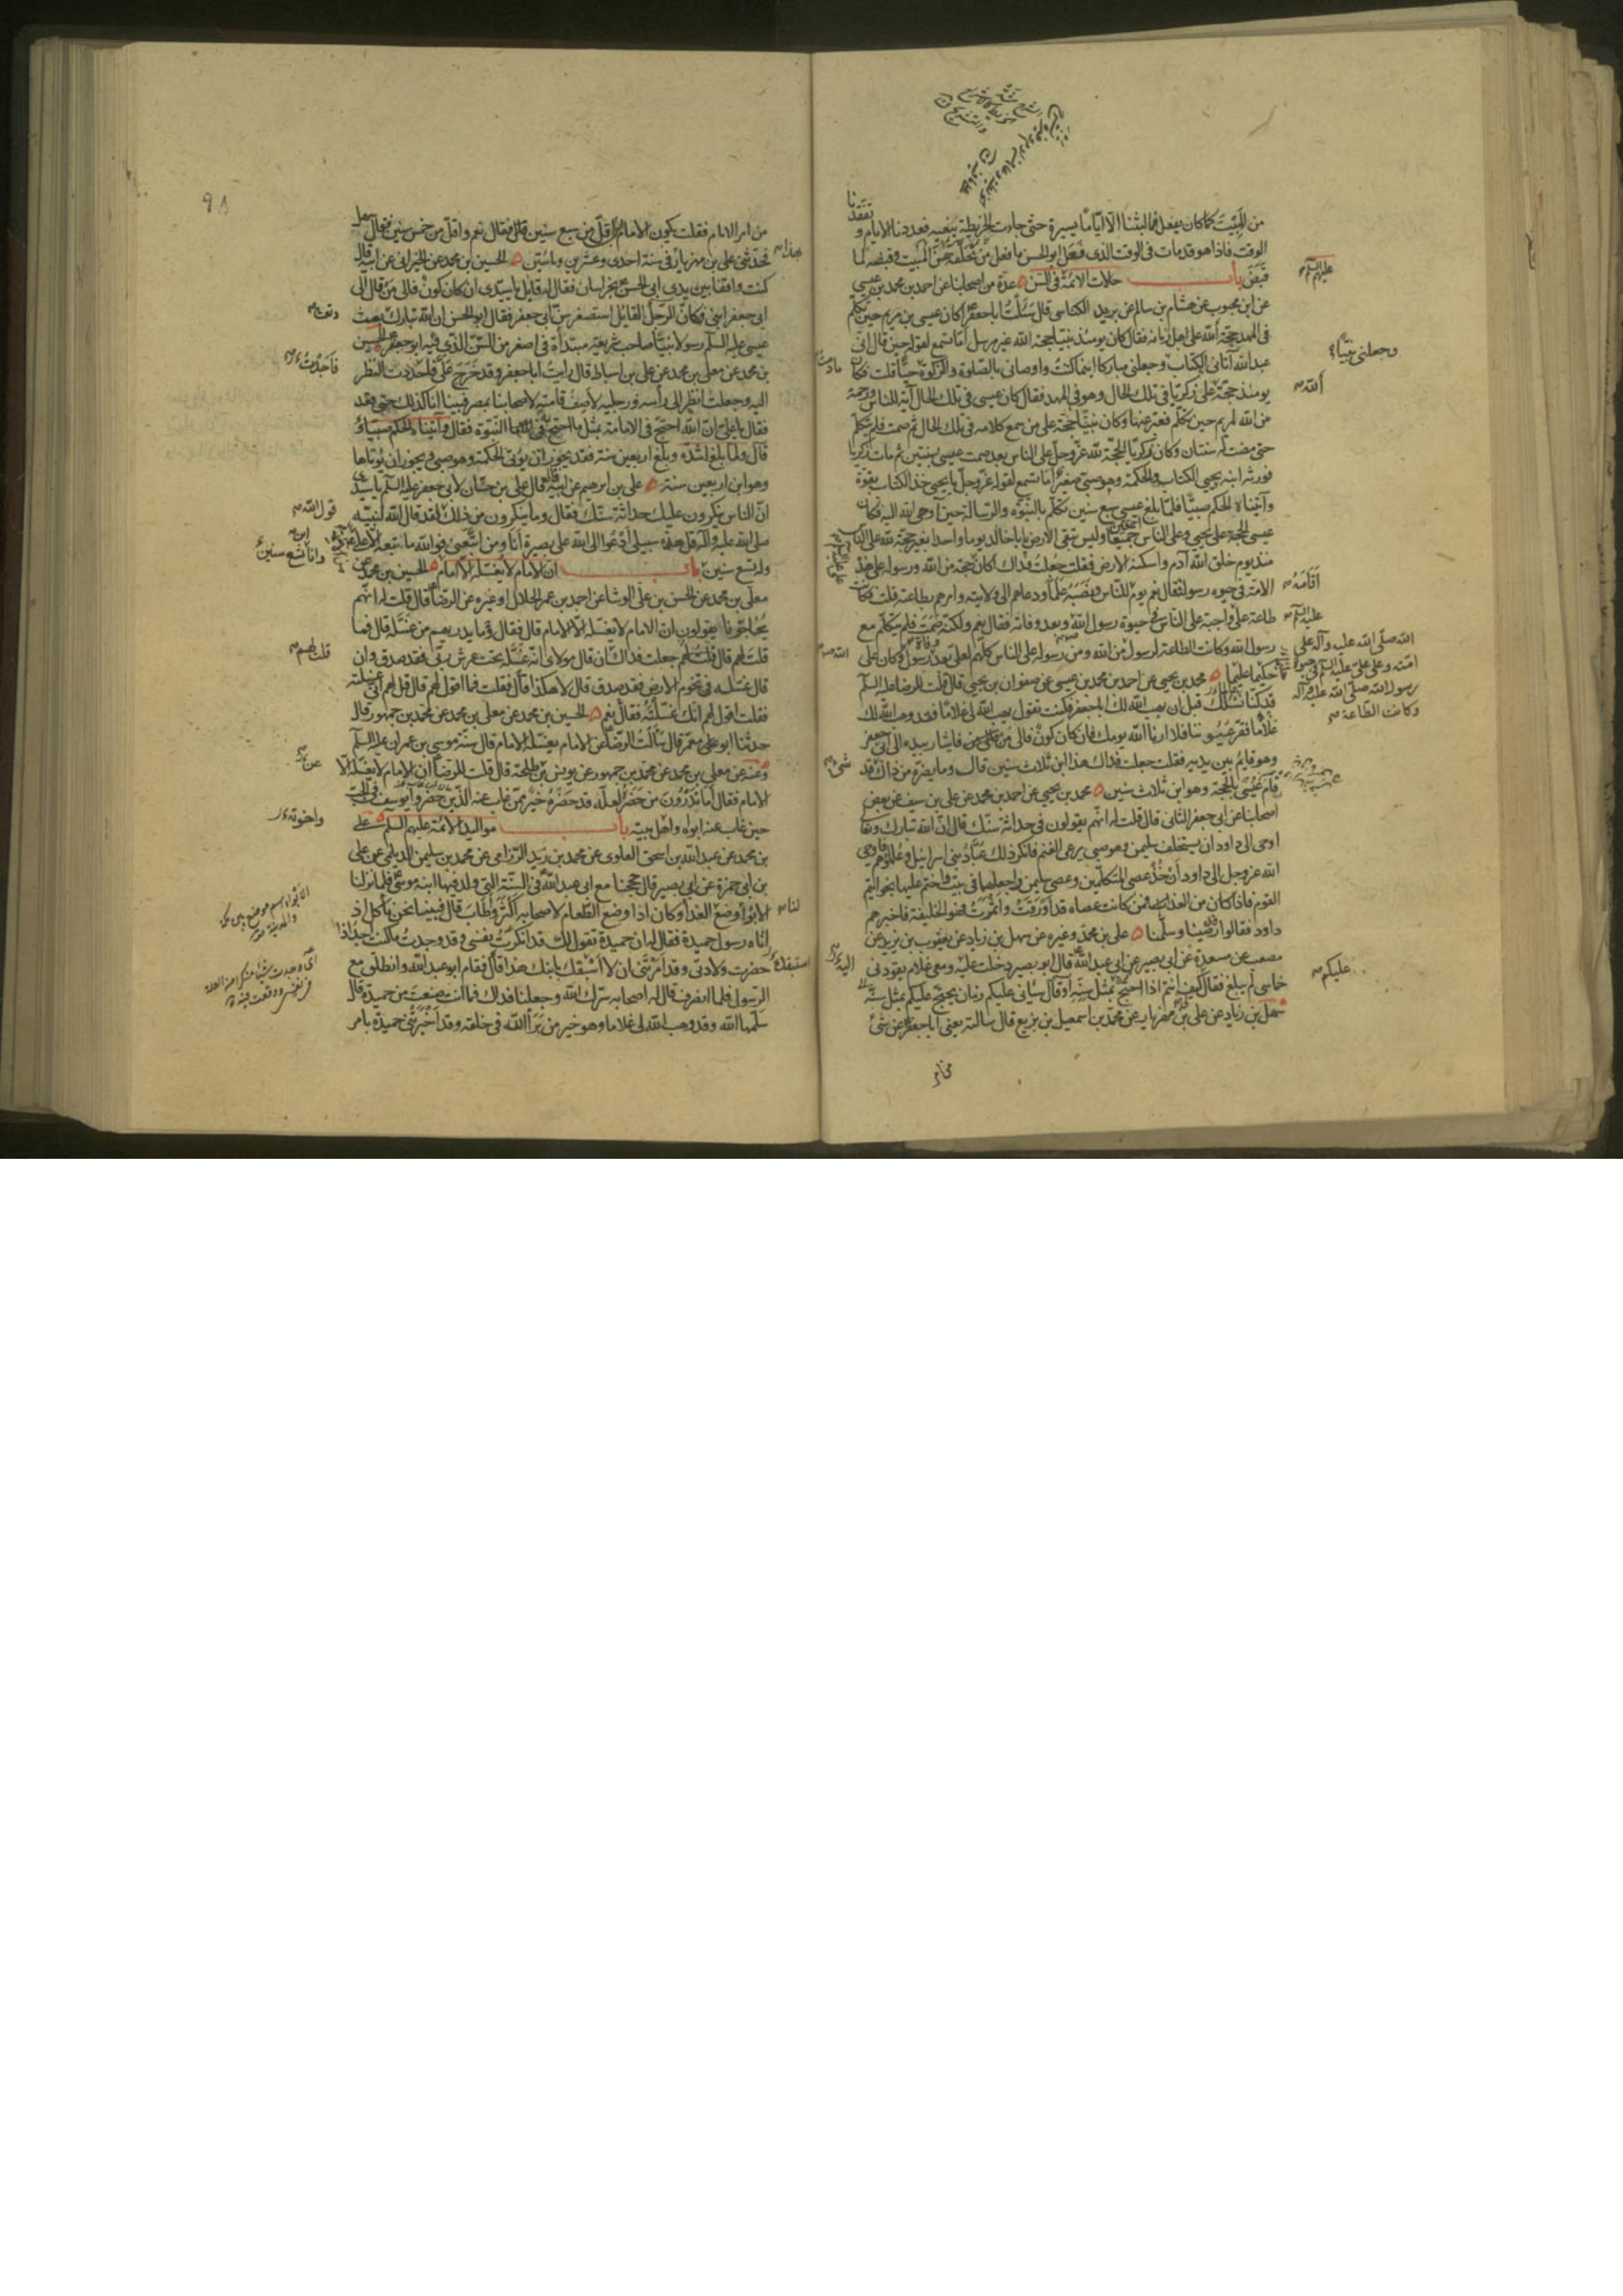 من المبيت كما كان يفعل فما لبثنا الا اياما يسيرة حتى جاءت الخريطة بنعيه فعددنا الايام و تفقدنا
الوقت فاذا هو قد مات في الوقت الذي فعل ابو الحسن ما فعل من تخلفه عن المبيت و قبضه لما
قبض باب حالات الائمة في السن عدة من اصحابنا عن احمد بن محمد بن عيسى
عن ابن محبوب عن هشام بن سالم عن بريد الكناسي قال سئلت ابا جعفر اكان عيسى بن مريم حين تكلم
في المهد حجة الله على اهل زمانه فقال كان يومئذ نبيا حجة الله غير مرسل اما تسمع لقوله حين قال اني
عبد الله آتاني الكتاب وجعلني مباركا اينما كنت واوصاني بالصلوة والزكوة حيا قلت فكان
يومئذ حجة على زكريا في تلك الحال وهو في المهد فقال كان عيسى في تلك الحال آية للناس ورحمة
من الله لمريم حين تكلم فعبر عنها وكان نبيا حجة على من سمع كلامه في تلك الحال ثم صمت فلم يتكلم
حتى مضت له سنتان وكان زكريا الحجة لله عز وجل على الناس بعد صمت عيسى بسنتين ثم مات زكريا
فورثه ابنه يحيى الكتاب والحكمة وهو صبي صغير اما تسمع لقوله عز وجل يا يحيى خذ الكتاب بقوة
وآتيناه الحكم صبيا فلما بلغ عيسى سبع سنين تكلم بالنبوة والرسالة حين اوحى الله اليه فكان
عيسى الحجة على يحيى وعلى الناس اجمعين وليس تبقى الارض يا با خالد يوما واحدا بغير حجة لله على الناس
منذ يوم خلق الله آدم واسكنه الارض فقلت جعلت فداك اكان حجة من الله ورسوله على هذه
الامة في حيوة رسوله فقال نعم يوم للناس ونصبه علما ودعاهم الى ولايته وامرهم بطاعته قلت فكانت
طاعة علي واجبة على الناس في حيوة رسول الله وبعد وفاته فقال نعم ولكنه صمت فلم يتكلم مع
رسول الله وكانت الطاعة لرسول من الله ومن رسوله على الناس كلهم لعلي بعد وفاة رسول وكان علي
حكيما عليما محمد بن يحيى عن احمد بن محمد بن عيسى عن صفوان بن يحيى قال قلت للرضا عليه السلم
قد كنا نسئلك قبل ان يهب الله لك ابا جعفر فكنت تقول يهب الله لي غلاما فقد وهب الله لك
غلاما فقر عيوننا فلا ارانا الله يومك فان كان كون فالى من فاشار بيده الى ابي جعفر
وهو قايم بين يديه فقلت جعلت فداك هذا ابن ثلاث سنين قال وما يضره من ذاك قد
قام عيسى بالحجة وهو ابن ثلاث سنين محمد بن يحيى عن احمد بن محمد عن علي بن سيف عن بعض
اصحابنا عن ابي جعفر الثاني قال قلت له انهم يقولون في حداثة سنك قال ان الله تبارك وتعالى
اوحى الى داود ان يستخلف سليمن وهو صبي يرعى الغنم فانكر ذلك عباد بني اسرائيل وعلماؤهم فاوحى
الله عز وجل الى داود ان خذ عصى المتكلمين وعصى سليمن واجعلها في بيت واختم عليها بخواتيم
القوم فاذا كان من الغد فمن كانت عصاه قد اورقت واثمرت فهو الخليفة فاخبرهم
داود فقالوا قد رضينا وسلمنا علي بن محمد وغيره عن سهل بن زياد عن يعقوب بن يزيد عن
مصعب عن مسعدة عن ابي بصير عن ابي عبد الله قال ابو بصير دخلت عليه ومعي غلام يقودني
خماسي لم يبلغ فقال كيف انتم اذا احتج بمثل سنه او قال سياتي عليكم زمان يحتج عليكم بمثل سنه
سهل بن زياد عن علي بن مهزيار عن محمد بن اسمعيل بن بزيع قال سالته يعني ابا جعفر عن شئ
عليهم السلم
وجعلني نبيا
الله
ما دمت
اقامه
عليه السلم
الله صلى الله عليه وآله على
امته وعلى علي عليه السلم في حيوة
رسول الله صلى الله عليه وآله
وكانت الطاعة
شئ
اليه
عليكم
٩٨
من امر الامام فقلت يكون الامام اقل من سبع سنين قال فقال نعم واقل من خمس سنين فقال سهل
فحدثني علي بن مهزيار في سنة احدى وعشرين ومائتين الحسين بن محمد عن الخيراني عن ابيه قال
كنت واقفا بين يدي ابي الحسن بخراسان فقال له قايل يا سيدي ان كان كون فالى من قال الى
ابي جعفر ابني فكان الرجل القايل استصغر سن ابي جعفر فقال ابو الحسن ان الله تبارك بعث
عيسى عليه السلم رسولا نبيا صاحب شريعة مبتدأة في اصغر من السن الذي فيه ابو جعفر الحسين
بن محمد عن معلى بن محمد عن علي بن اسباط قال رايت ابا جعفر وقد خرج علي فلحددت النظر
اليه وجعلت انظر الى رأسه ورجليه لاصف قامته لاصحابنا بمصر فبينا انا كذلك حتى قعد
فقال يا علي ان الله احتج في الامامة بمثل ما احتج به في النبوة فقال وآتيناه الحكم صبيا و
قال ولما بلغ اشده وبلغ اربعين سنة فقد يجوز ان يؤتى الحكمة وهو صبي ويجوز ان يؤتاها
وهو ابن اربعين سنة علي بن ابرهيم عن ابيه قال قال علي بن حسان لابي جعفر عليه السلم يا سيدي
ان الناس ينكرون عليك حداثة سنك فقال وما ينكرون من ذلك لقد قال الله لنبيه
صلى الله عليه وآله قل هذه سبيلي ادعوا الى الله على بصيرة انا ومن اتبعني فوالله ما تبعه الا علي
وله تسع سنين باب ان الامام لا يغسله الا امام الحسين بن محمد عن
معلى بن محمد عن الحسن بن علي الوشا عن احمد بن عمر الحلال او غيره عن الرضا قال قلت له انهم
يحاجونا يقولون ان الامام لا يغسله الا الامام قال فقال وما يدريهم من غسله قال فما
قلت لهم قال قلت لهم جعلت فداك ان قال مولاي انه غسله تحت عرش ربي فقد صدق وان
قال غسله في تخوم الارض فقد صدق قال لا هكذا قال فقلت فما اقول لهم قال قل لهم اني غسلته
فقلت اقول لهم انك غسلته فقال نعم الحسين بن محمد عن معلى بن محمد عن محمد بن جمهور قال
حدثنا ابو علي معمر قال سالت الرضا عن الامام يغسله الامام قال سنة موسى بن عمران عليه السلم
وعنه عن معلى بن محمد عن محمد بن جمهور عن يونس بن طلحة قال قلت للرضا ان الامام لا يغسله الا
الامام فقال اما تدرون من حضر لعله قد حضره خير ممن غاب عنه الذين حضروا يوسف في الجب
حين غاب عنه ابواه واهل بيته باب مواليد الائمة عليهم السلم علي
بن محمد عن عبد الله بن اسحق العلوي عن محمد بن زيد الرزامي عن محمد بن سليمن الديلمي عن علي
بن ابي حمزة عن ابي بصير قال حججنا مع ابي عبد الله في السنة التي ولد فيها ابنه موسى فلما نزلنا
الابوا وضع الغدا وكان اذا وضع الطعام لاصحابه اكثر واطاب قال فبينا نحن نأكل اذ
اتاه رسول حميدة فقال له ان حميدة تقول لك قد انكرت نفسي وقد وجدت ما كنت اجد اذا
حضرت ولادتي وقد امرتني ان لا اسبقك بابنك هذا قال فقام ابو عبد الله وانطلق مع
الرسول فلما انصرف قال له اصحابه سرك الله وجعلنا فداك فما انت صنعت من حميدة قال
سلمها الله وقد وهب الله لي غلاما وهو خير من برأ الله في خلقه وقد اخبرتني حميدة بامر
بهذا
وتعالى
فاحددت
قول الله
وانا ابن تسع سنين
قلت لهم
عن
واخوته
لنا
الابواء اسم موضع بين مكة
والمدينة